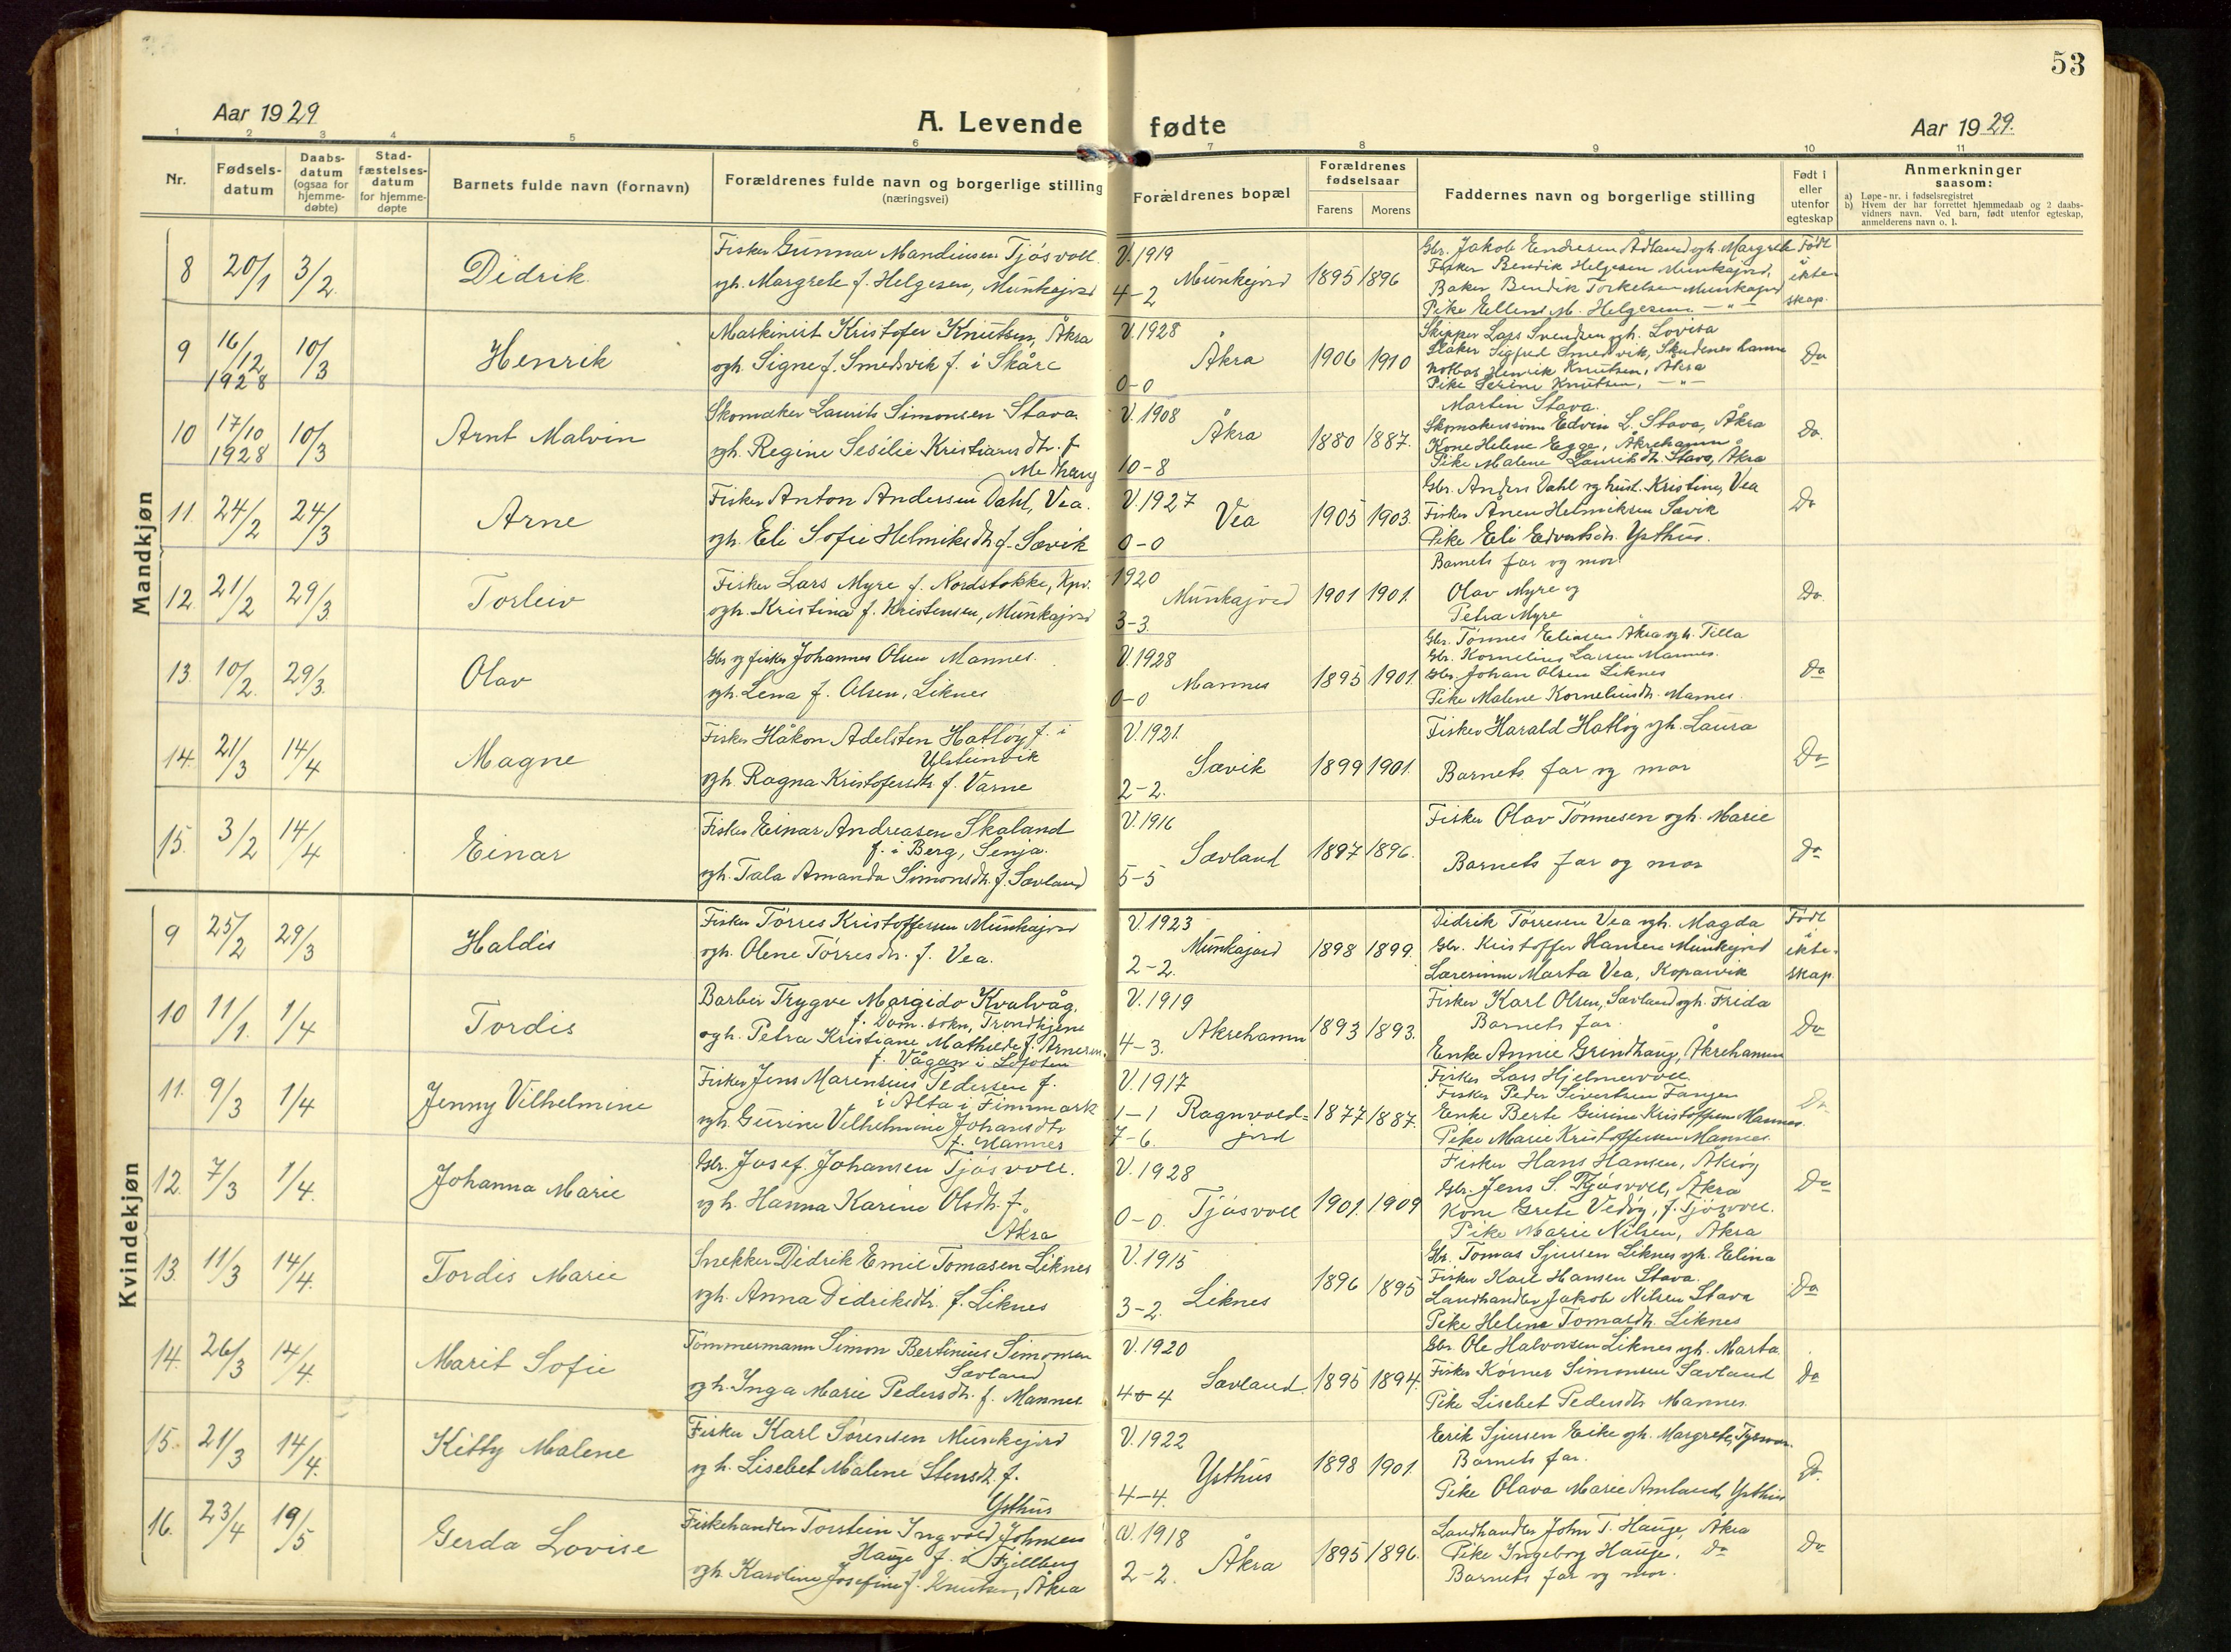 53
Aar 1929
A. Levende fødte
Aar 1929.
1 2 3 4 5 6 7 8 9 10 11
Nr.
Fødsels-
datum
Daabs-
datum
(ogsaa for
hjemme-
døbte)
Stad-
fæstelses-
datum
for hjemme-
døpte
Barnets fulde navn (fornavn)
Forældrenes fulde navn og borgerlige stilling
(næringsvei)
Forældrenes bopæl
Forældrenes
fødselsaar
Farens Morens
Faddernes navn og borgerlige stilling
Født i
eller
utenfor
egteskap
Anmerkninger
saasom:
a) Løpe-nr. i fødselsregistret
b) Hvem der har forrettet hjemmedaab og 2 daabs-
vidners navn. Ved barn, født utenfor egteskap,
anmelderens navn o. l.
Mandkjøn
8 20/1 3/2 Didrik
Fisker Gunnar Mandiusen Tjøsvoll.
ogh. Margrete f. Helgesen, Munkajord
V. 1919
4-2 Munkejord 1895 1896
Gbr. Jakob Endresen Ådland ogh. Margrete
Fisker Bendik Helgesen Munkajord,
Baker Bendik Torkelsen Munkajord
Pike Ellen M. Helgesen — " —
Født
i
ekte-
skap.
9 16/12 1928 10/3 Henrik
Maskinist Kristofer Knutsen, Åkra
ogh. Signe f. Smedsvik f. i Skåre
V. 1928
0-0 Åkra 1906 1910
Skipper Lars Svendsen ogh. Lovisa
Sigfred Smedsvik, Skudeneshamn
Henrik Knutsen, Åkra
Pike Serine Knutsen, — " —
Do
10 17/10 1928 10/3 Arnt Malvin
Skomaker Laurits Simonsen Stava
ogh. Regine Sesilie Kristiansdtr. f.
Medhaug
V. 1908
10-8 Åkra 1880 1887.
Martin Stava.
Skomakersønn Edvin L. Stava, Åkra
Kone Helene Egge, Åkrehamn
Pike Malene Lauritsdtr. Stava, Åkra
Do.
11. 24/2 24/3 Arne
Fisker Anton Andersen Dahl, Vea.
ogh. Eli Sofie Helmiksdtr. f. Sævik
V. 1927
0-0 Vea 1905 1903.
Gbr. Anders Dahl og hust. Kristine, Vea
Fisker Ånen Helmiksen Sævik
Pike Eli Edvartsdtr. Ysthus.
Do
12. 21/2 29/3 Torleiv
Fisker Lars Myre f. Nordstokke, Kpv.
ogh. Kristina f. Kristensen, Munkajord
1920
3-3. Munkajord 1901 1901.
Barnets far og mor
Olav Myre og
Petra Myre
Do.
13. 10/2. 29/3. Olav
Gbr og fisker Johannes Olsen Mannes.
ogh. Lena f. Olsen, Liknes
V. 1928
0-0 Mannes 1895 1901.
Gbr. Tønnes Eliasen Åkra ogh. Tilla
Gbr. Kornelius Larsen Mannes.
Gbr. Johan Olsen Liknes
Pike Malene Korneliusdtr. Mannes.
Do
14. 21/3 14/4 Magne
Fisker Håkon Adelsten Hatløy f. i
Ulsteinvik
ogh. Ragna Kristofersdtr f. Varne
V. 1921.
2-2. Sævik 1899 1901.
Fisker Harald Hatløy ogh. Laura
Barnets far og mor
Do
15. 3/2 14/4 Einar
Fisker Einar Andreasen Skaland
f. i Berg, Senja.
ogh. Tala Amanda Simonsdtr. f. Sævland
V. 1916
5-5 Sævland 1897 1896.
Fisker Olav Tønnesen ogh. Marie
Barnets far og mor
Do
Kvindekjøn
9 25/2 29/3 Haldis
Fisker Tørres Kristoffersen Munkajord
ogh. Olene Tørresdtr. f. Vea.
V. 1923
2-2. Munkajord 1898 1899.
Didrik Tørresen Vea ogh. Magda
Gbr. Kristoffer Hansen Munkejord
Lærerinne Marta Vea, Kopervik
Født
i
ekte-
skap
10 11/1. 1/4 Tordis
Barber Trygve Margido Kvalvåg,
f. Dom. sokn, Trondhjem
ogh. Petra Kristiane Mathilde f. Arnesen
f. Vågan i Lofoten
V. 1919
4-3. Åkrehamn 1893 1893.
Fisker Karl Olsen, Sævland ogh. Frida
Barnets far.
Enke Annie Grindhaug, Åkrehamn
Do
11. 9/3 1/4 Jenny Vilhelmine
Fisker Jens Marensius Pedersen f.
i Alta i Finnmark
ogh. Gurine Vilhelmine Johansdtr
f. Mannes
V. 1917
1-1
7-6. Ragnvold=
jord 1877 1887.
Fisker Lars Hjelmervoll.
Fisker Peder Sivertsen Fanjen
Enke Berte Gurine Kristoffersen Mannes.
Pike Marie Kristoffersen Mannes.
Do
12. 7/3 1/4. Johanna Marie
Gbr. Josef Johansen Tjøsvoll.
ogh. Hanna Karine Olsdtr. f.
Åkra
V. 1928
0-0. Tjøsvoll 1901. 1909
Fisker Hans Hansen, Åkrøy
Gbr. Jens S. Tjøsvoll, Åkra
Kone Grete Vedøy, f. Tjøsvoll.
Pike Marie Nilsen, Åkra
Do
13. 11/3 14/4. Tordis Marie
Snekker Didrik Emil Tomasen Liknes
ogh. Anna Didriksdtr. f. Liknes
V. 1915
3-2. Liknes 1896 1895
Gbr. Tomas Sjursen Liknes ogh. Elina
Fisker Karl Hansen Stava.
Landhandler Jakob Nilsen Stava
Pike Helene Tomasdtr. Liknes
Do
14. 26/3 14/4. Marit Sofie
Tømmermann Simon Bertinius Simonsen
Sævland
ogh. Inga Marie Pedersdtr. f. Mannes
V. 1920
4-4 Sævland. 1895 1894.
Gbr. Ole Halvorsen Liknes ogh. Marta.
Fisker Kørner Simonsen Sævland
Pike Lisebet Pedersdtr Mannes.
Do
15. 21/3 14/4. Kitty Malene
Fisker Karl Sørensen Munkejord
ogh. Lisebet Malene Stensdtr. f.
Ysthus
V. 1922
4-4. Ysthus 1898 1901.
Eerik Sjursen Eike ogh. Margrete, Tysvær.
Barnets far.
Pike Olava Marie Amland, Ysthus
Do.
16. 23/4 19/5 Gerda Lovise
Fiskehandler Torstein Ingvald Johnsen
Hauge f. i Fjellberg
ogh. Karoline Josefine f. Knutsen, Åkra
V. 1918
2-2. Åkra 1895 1896.
Landhandler John T. Hauge, Åkra
Pike Ingeborg Hauge, Do
Barnets far og mor.
Do